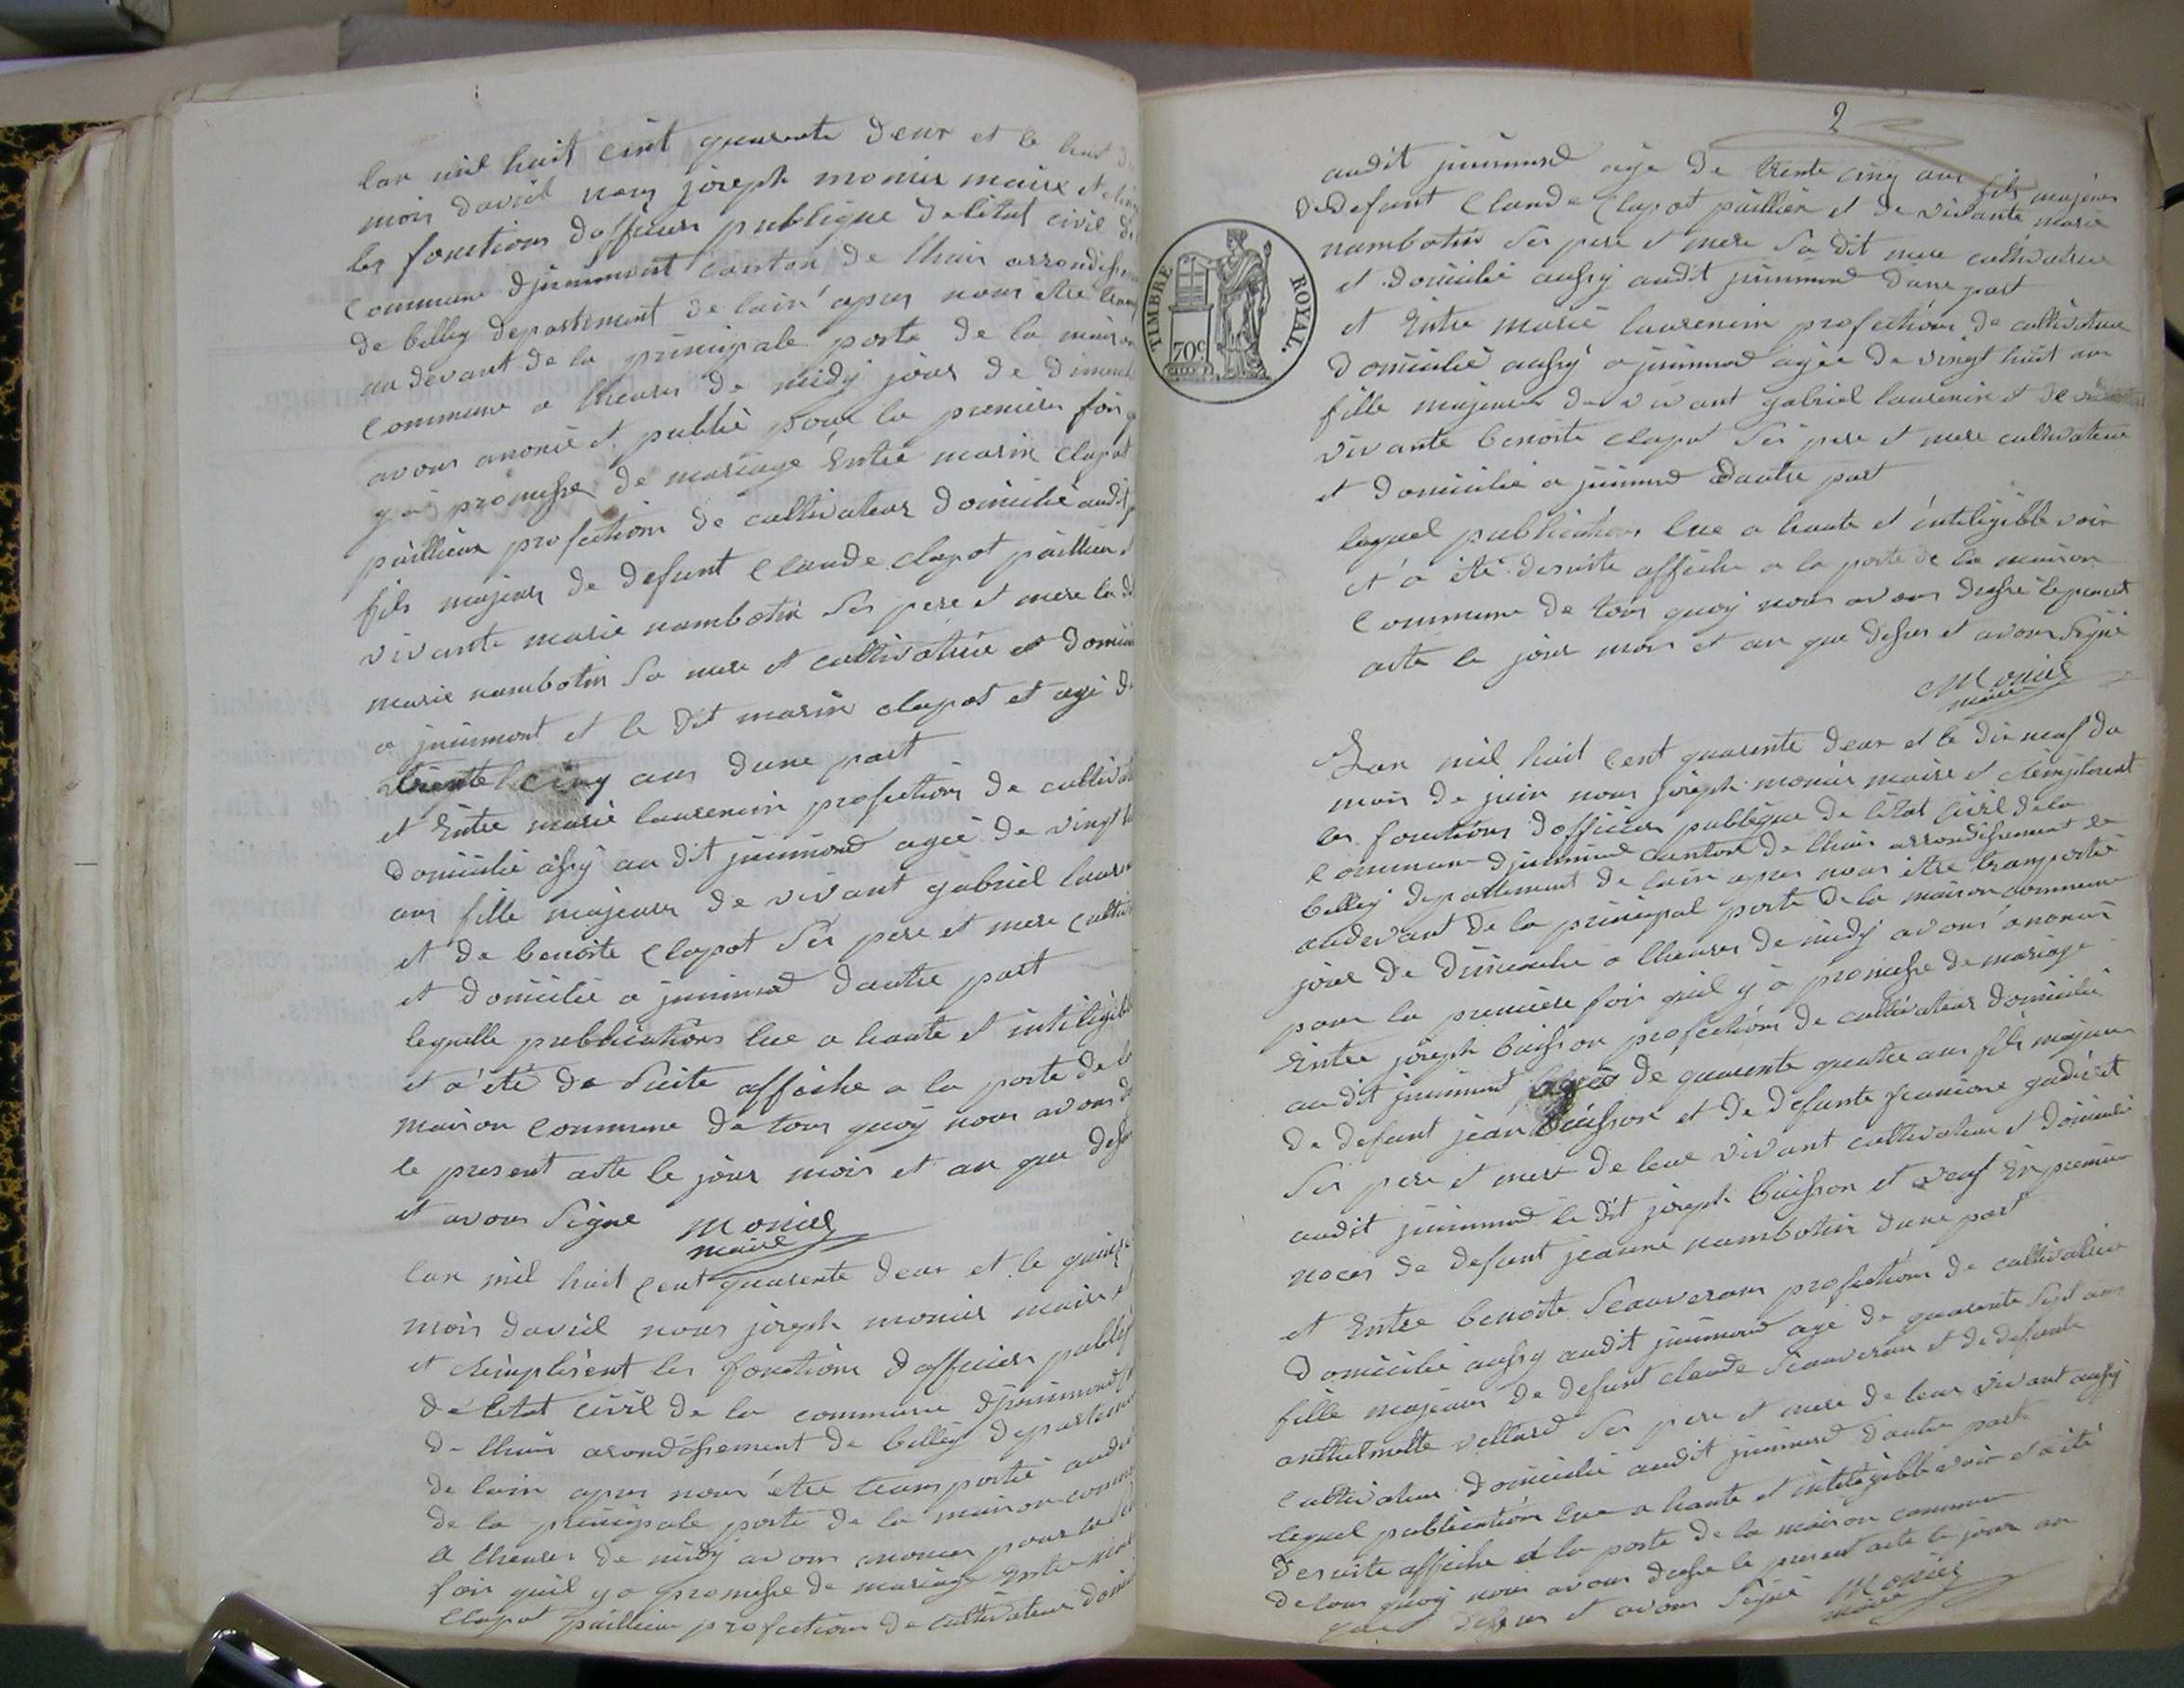 lan mil huit cent quarente deux et le huit
mois davril nous joseph monier maire et
les fonctions dofficier publique deletat civil de
commune djnnimont canton de lhuis arrondisem
de belley departement de lain apres nous etre
au devant de la principale porte de la maison
commune a lheures de midy jour de dimenche
avons anonce et publié pour la premiere fois
y a promesse de mariage Entre marin clapot
paillieux profections de cultivateur domicilié audit
fils majeur de defunt claude clapot paillieux et
vivante marie nambotin Ses pere et mere la
marie nambotin Sa mere et cultivatrice et domicilié
a jnnimont et le dit marin clapot et agé de
trente cinq ans dune part
et Entre marie laurencin profections de cultivat
domicilié assy au dit jnnimond agée de vingt
ans fille majeure de vivant gabriel lauren
et de benoite clapot Ses pere et mere cultiv
et domicilié a jnnimond dautre part
lequelle publications lue a haute et inteligible
et a été de Suite affiche a la porte de la
maison commune de tous quoy nous avons
le present acte le jour mois et an que desu
et avons Signe Monier
maire
lan mil huit cent quarente deux et le quinze
mois davril nous joseph monier maire
et remplisent les fonctions dofficier publiq
de letat civil de la commune djnnimond
de lhuis arondissement de belley departement
de lain apres nous étre transportié audevant
de la principale porte de la maison commune
a lheures de midy avons anonces pour la
fois quil y a promesse de mariage Entre marin
clapot paillieux profections de cultivateur domi
2
audit jnnimond age de trente cinq ans fils majeur
de defunt Claude Clapot paillieux et de vivante marie
nambotin Ses pere et mere Sa dit mere cultivatrice
et domicilié aussy audit jnnimond dune part
TIMBRE ROYAL.
70c
et Entre marie laurencin profections de cultivateur
domicilié aussy a jnnimond agée de vingt huit ans
fille majeure de vivant gabriel laurencin et de
vivante benoite clapot Ses pere et mere cultivateur
et domicilié a jnnimond dautre part
lequel publications lue a haute et inteligible voix
et a été desuite affiche a la porte de la maison
commune de tous quoy nous avons dressé le present
acte le jour mois et an que desus et avons Signé
Monier
maire
Lan mil huit cent quarente deux et le dix neuf du
mois de juin nous joseph monier maire et remplisent
les fonctions dofficier publique de létat civil de la
commune djnnimond canton de lhuis arrondissement de
belley departement de lain apres nous être transportié
audevant de la principal porte de la maison commune
jour de dimenche a lheures de midy avons anonces
pour la premiere fois quil y a promesse de mariage
Entre joseph buisson profections de cultivateur domicilié
au dit jnnimont agée de quarente quatre ans fils majeur
de defunt jean buisson et de defunte jeanne
Ses pere et mere de leur vivant cultivateur et domicilié
audit jnnimond le dit joseph buisson et veuf En premier
noces de defunt jeanne nambotin dune part
et Entre benoite Seauveram profections de cultivateur
domicilié aussy audit jnnimond age de quarente Sept ans
fille majeure de defunt claude Seauveram et de defunte
anthelmette vettard Ses pere et mere de leur vivant aussy
cultivateur domicilié audit jnnimond dautre part
lequel publication lue a haute et inteligible voix et a été
desuite affiche a la porte de la maison commune
de tous quoy nous avons dressé le present acte le jour an
que desus et avons Signé Monier
maire